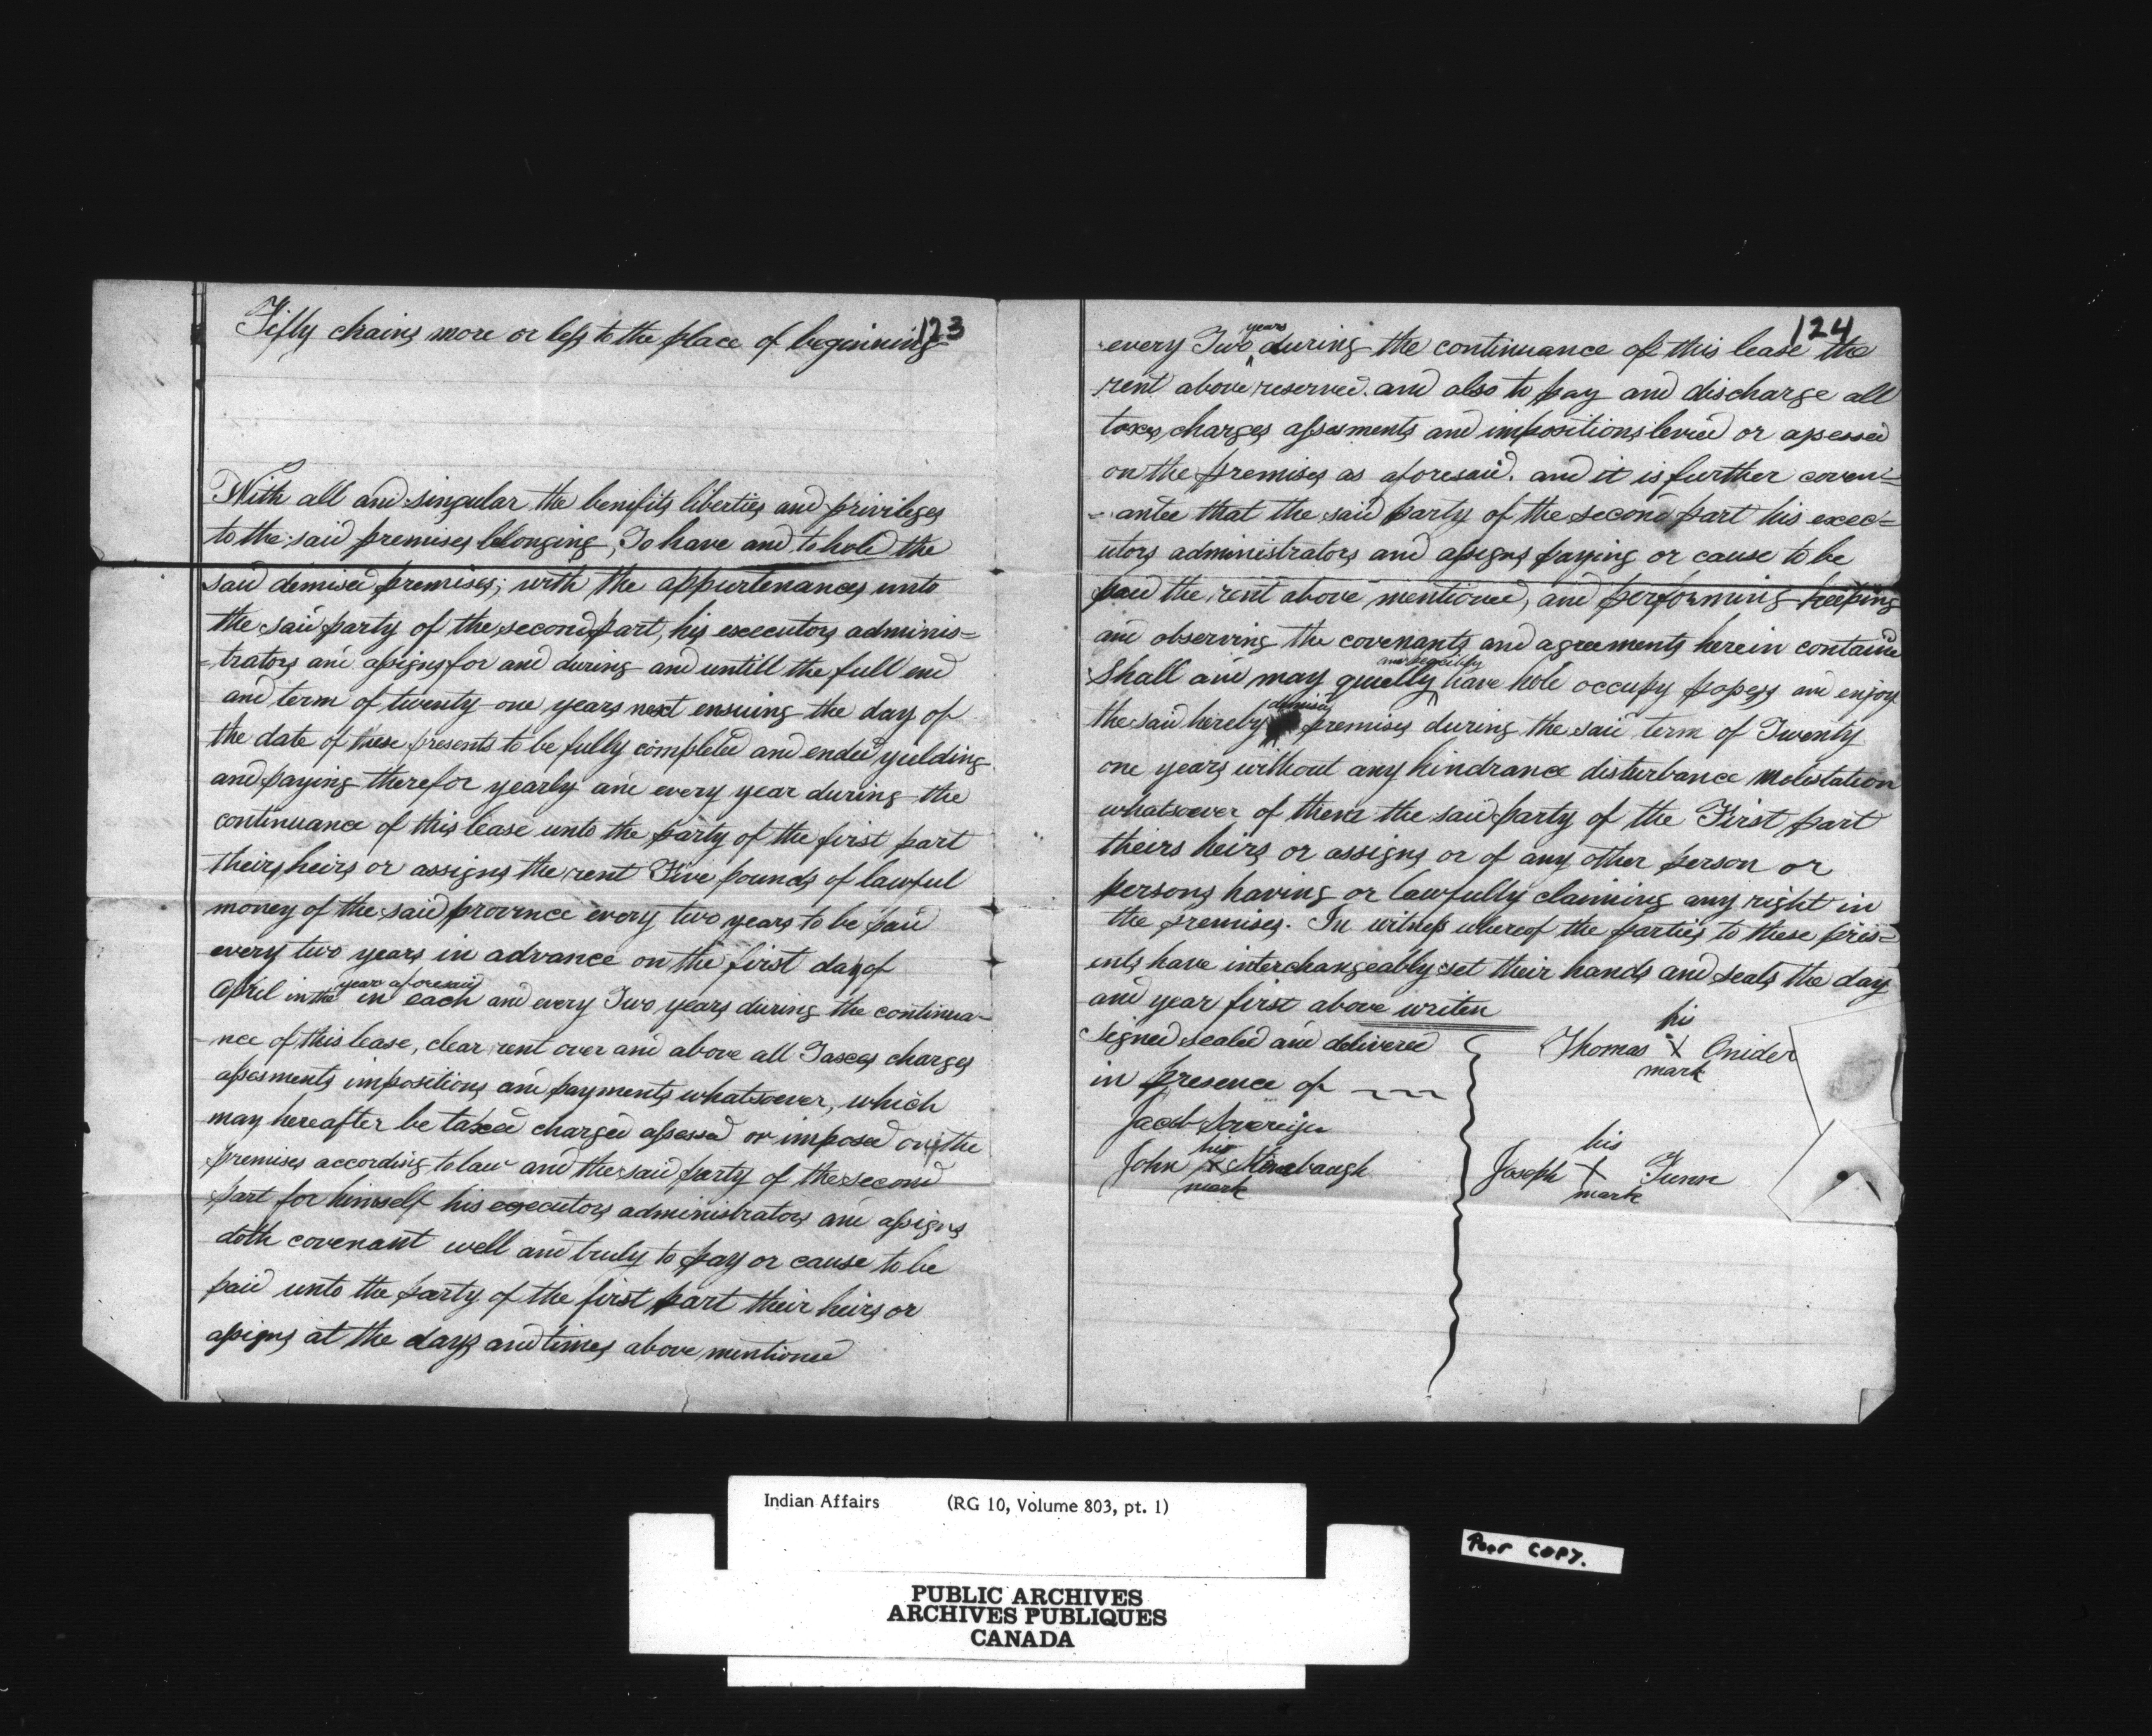 123
Fifty chains more or less to the place of beginning
With all and singular the benifits liberties and privileges
to the said premises belonging, To have and to hold the
said demised premises; with the appurtenances unto
the said party of the second part, his executors adminis=
=trators and assigns for and during and untill the full end
and term of twenty one years next ensuing the day of
the date of these presents to be fully completed and ended yielding
and paying therefor yearly and every year during the
continuance of this lease unto the party of the first part
theirs heirs or assigns the rent Five pounds of lawful
money of the said province every two years to be paid
every two years in advance on the first day of
April in the year aforesaid in each and every Two years during the continua-
nce of this lease, clear rent over and above all Taxes charges
assesments impositions and payments whatsoever, which
may hereafter be taxed charged assessed or imposed on the
premises according to law and the said party of the second
part for himself his executors administrators and assigns
doth covenant well and truly to pay or cause to be
paid unto the party of the first part their heirs or
assigns at the days and times above mentioned
124
every Two years during the continuance of this lease the
rent above reserved. and also to pay and discharge all
taxes, charges assesments and impositions levied or assessed
on the premises as aforesaid. and it is further coven=
-anted that the said party of the second part his exec=
utors administrators and assigns paying or cause to be
paid the rent above mentioned, and performing keeping
and observing the covenants and agreements herein contained
Shall and may quietly and peacibly have hold occupy possess and enjoy
the said hereby demised premises during the said term of Twenty
one years without any hindrance disturbance molestation
whatsoever of them the said party of the First part
theirs heirs or assigns or of any other person or
persons having or lawfully claiming any right in
the premises. In witness whereof the parties to these pres=
ents have interchangeably set their hands and seals the day
and year first above writen
Signed sealed and delivered
in presence of
Jacob Sovereign
John his X mark
Thomas his X mark Onider
Joseph his X mark
Indian Affairs (RG 10, Volume 803, pt. 1)
Poor COPY.
PUBLIC ARCHIVES
ARCHIVES PUBLIQUES
CANADA